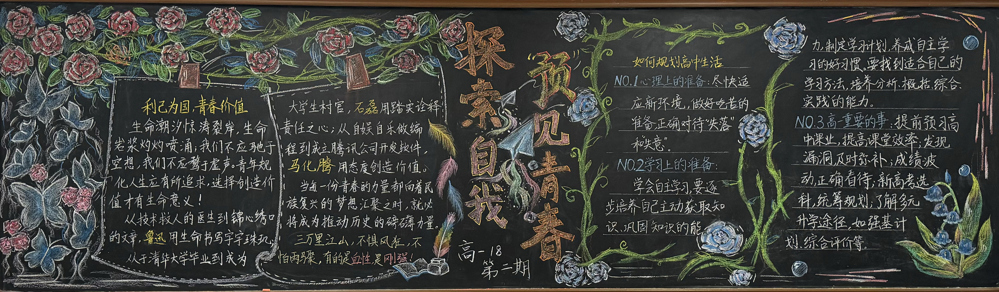 利己为国,青春价值
生命潮汐惊涛裂岸,生命
岩浆灼灼喷涌;我们不忘驰于
空想,我们不忘骛于虚声;青年规
化人生应有所追求;选择创造价
值才有生命意义!
从技术救人的医生到锦心绣口
的文章,鲁迅用生命书写字字珠玑。
从于清华大学毕业到成为
大学生村官,石磊用踏实诠释
责任之心;从自娱自乐做编
程到成立腾讯公司开发软件,
马化腾用态度创造价值。
当每一份青春的力量都向着民
族复兴的梦想汇聚之时,就必
将成为推动历史的磅礴力量。
三万里江山,不惧风疾,不
怕雨骤,有的是血性是刚强!
探索自我
"预见"青春
高一.18
第二期
如何规划高中生活
NO.1心理上的准备:尽快适
应新环境,做好吃苦的
准备,正确对待"失落"
和失意。
NO.2学习上的准备:
学会自主学习,要逐
步培养自己主动获取知
识、巩固知识的能
力,制定学习计划,养成自主学
习的好习惯,要找到适合自己的
学习方法,培养分析、概括、综合、
实践的能力。
NO.3高一重要的事:提前预习高
中课业,提高课堂效率,发现
漏洞及时弥补;成绩波
动,正确看待,新高考选
科,统筹规划,了解多元
升学途径,如强基计
划,综合评价等。